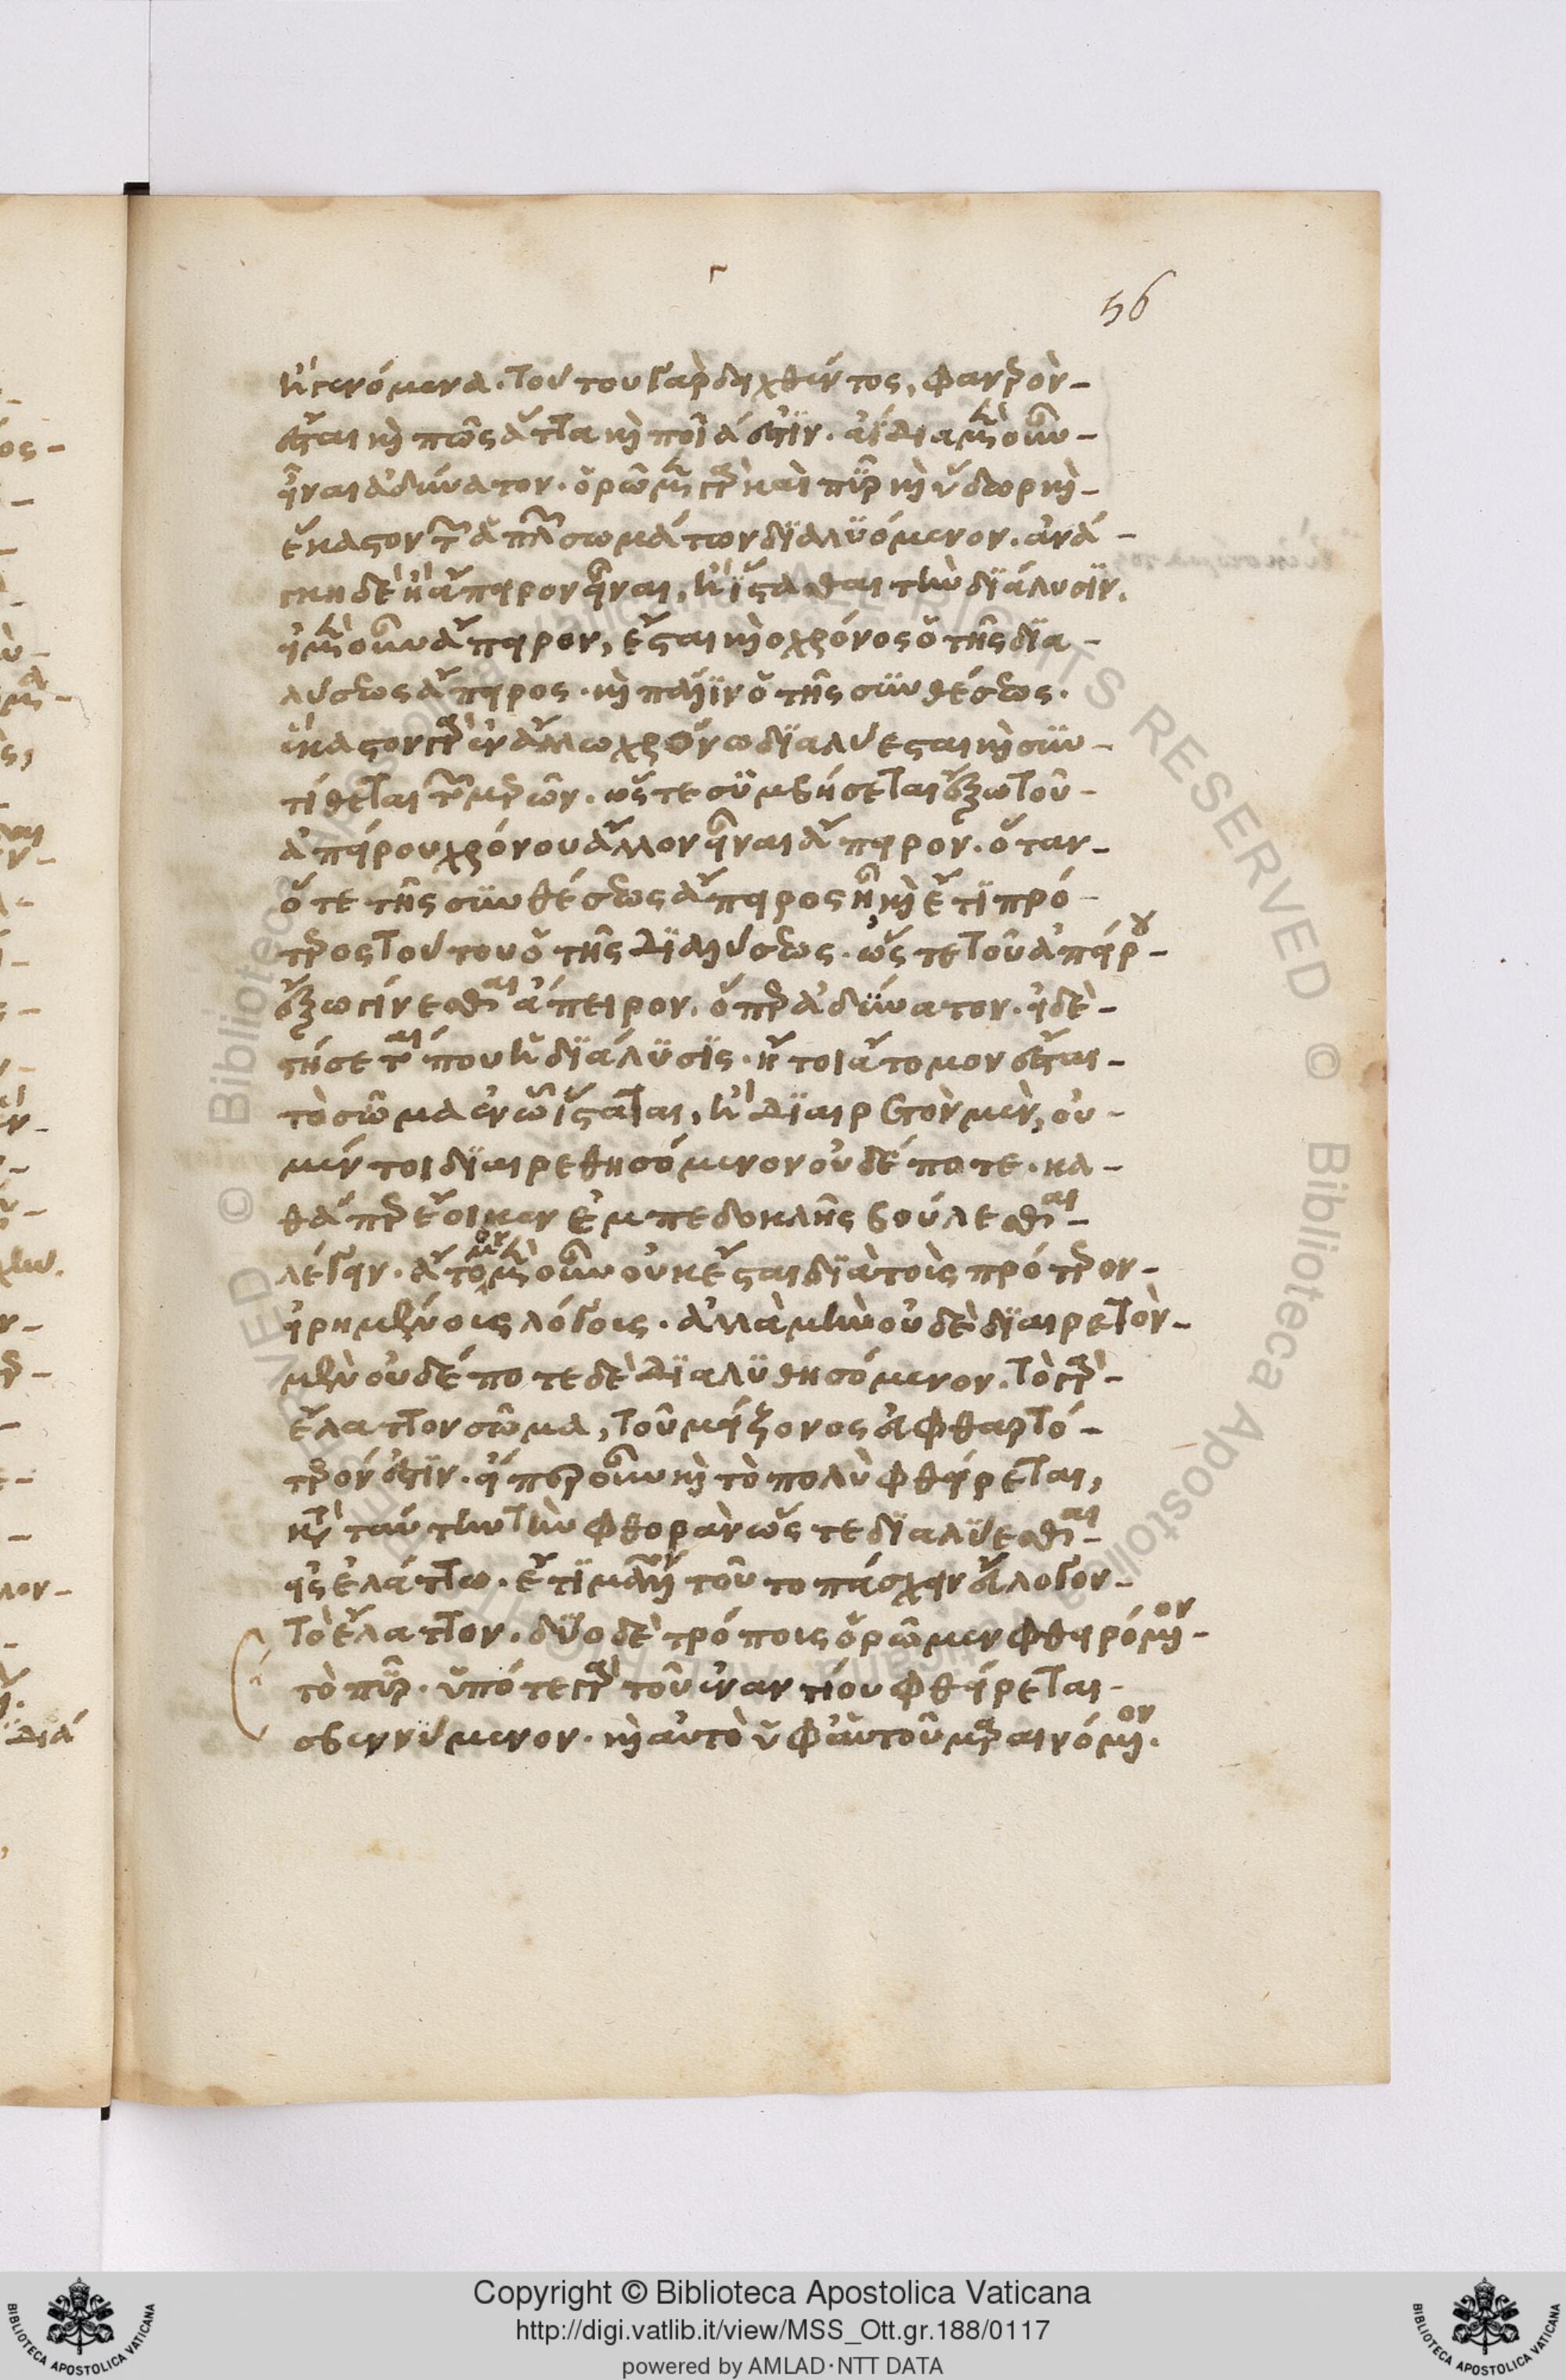 ἢ γενόμενα. τούτου γὰρ δειχθέντος, φανερὸν
ἔσται καὶ πῶς ἄττα καὶ ποῖά ἐστιν. ἀΐδια μὲν οὖν
εἶναι ἀδύνατον. ὁρῶμεν γὰρ καὶ πῦρ καὶ ὕδωρ καὶ
ἕκαστον τῶν ἁπλῶν σωμάτων διαλυόμενον. ἀνά
γκη δὲ ἢ ἄπειρον εἶναι, ἢ ἵστασθαι τὴν διάλυσιν.
εἰ μὲν οὖν ἄπειρον, ἔσται καὶ ὁ χρόνος ὁ τῆς δια
λύσεως ἄπειρος. καὶ πάλιν ὁ τῆς συνθέσεως.
ἕκαστον γὰρ ἐν ἄλλω χρόνω διαλύεται καὶ συν
τίθεται τῶν μερῶν. ὥστε συμβήσεται ἔξω τοῦ
ἀπείρου χρόνου ἄλλον εἶναι ἄπειρον. ὅταν
ὅ τε τῆς συνθέσεως ἄπειρος ἦ καὶ ἔτι πρό
τερος τούτου ὁ τῆς διαλύσεως. ὥστε τοῦ ἀπείρου
ἔξω γίνεσθαι ἄπειρον. ὅπερ ἀδύνατον. εἰ δὲ
στήσεταί που ἡ διάλυσις. ἤτοι ἄτομον ἔσται
τὸ σῶμα ἐν ὧ ἵσταται, ἢ διαιρετὸν μὲν, οὐ
μέντοι διαιρεθησόμενον οὐδέποτε. κα
θάπερ ἔοικεν ἐμπεδοκλῆς βούλεσθαι
λέγειν. ἄτομον μὲν οὖν οὐκ ἔσται διὰ τοὺς πρότερον
εἰρημένους λόγους. ἀλλὰ μὴν οὐδὲ διαιρετὸν
μὲν οὐδέποτε δὲ διαλυθησόμενον. τὸ γὰρ
ἔλαττον σῶμα, τοῦ μείζονος εὐφθαρτό
τερόν ἐστιν. εἴπερ οὖν καὶ τὸ πολὺ φθείρεται,
κατὰ ταύτην τὴν φθορὰν ὥστε διαλύεσθαι
εἰς ἐλάττω. ἔτι μᾶλλον τοῦτο πάσχειν εὔλογον
τὸ ἔλαττον. δύο δὲ τρόπους ὁρῶμεν φθειρόμενον
τὸ πῦρ. ὑπό τε γὰρ τοῦ ἐναντίου φθείρεται
σβεννύμενον. καὶ αὐτὸ ὑφ' αὑτοῦ μαραινόμενον.
56
Copyright © Biblioteca Apostolica Vaticana
http://digi.vatlib.it/view/MSS_Ott.gr.188/0117
powered by AMLAD·NTT DATA